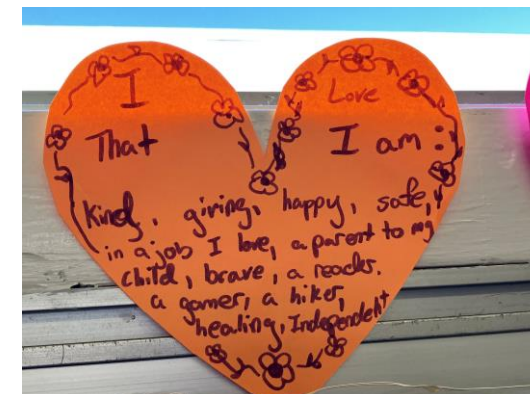 I Love
That I am :
Kind, giving, happy, safe, &
in a job I love, a parent to my
child, brave, a reader.
a gamer, a hiker,
healing, Independent